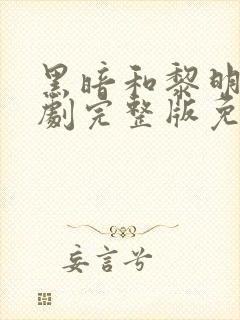 黑暗和黎明
劇完整版免
妄言兮